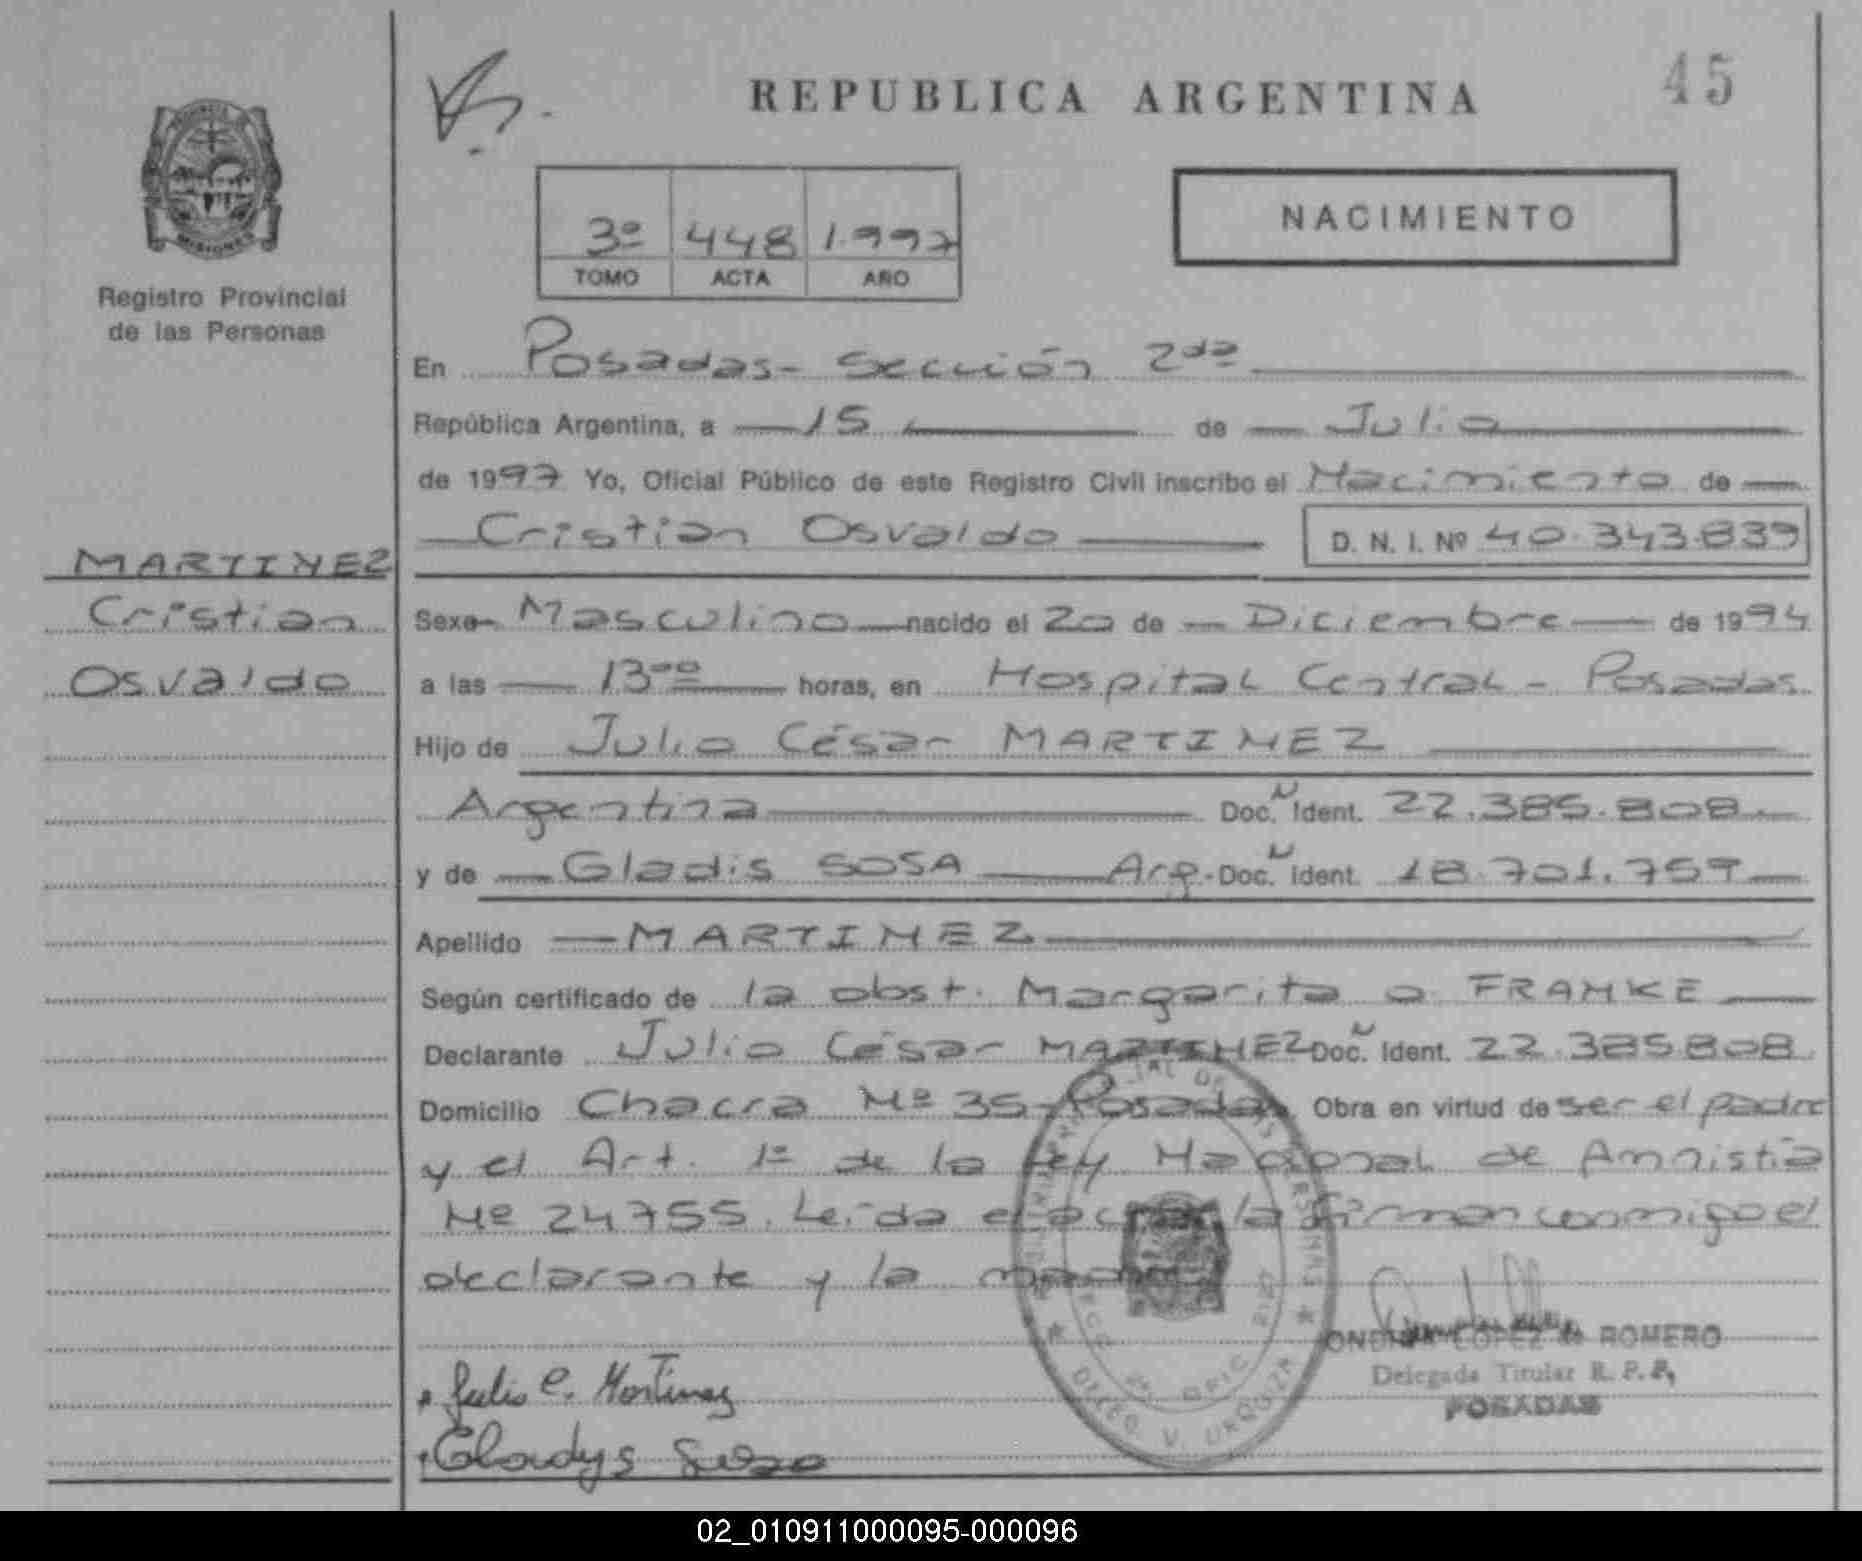 REPUBLICA ARGENTINA
45
PROVINCIA
MISIONES
Registro Provincial
de las Personas
3º 448 1.997
TOMO ACTA AÑO
NACIMIENTO
En Posadas- Sección 2da
República Argentina, a 15 de Julio
de 1997 Yo, Oficial Público de este Registro Civil inscribo el Nacimiento de
Cristian Osvaldo D. N. I. Nº 40.343.839
MARTINEZ
Cristian
Osvaldo
Sexo Masculino nacido el 20 de Diciembre de 1994
a las 1300 horas, en Hospital Central - Posadas
Hijo de Julio César MARTINEZ
Argentina Doc. Ident. 22.385.808
y de Gladis SOSA Arg. Doc. Ident. 18.701.759
Apellido MARTINEZ
Según certificado de la obst. Margarita O. FRANKE
Declarante Julio César MARTINEZ Doc. Ident. 22.385.808
Domicilio Chacra Nº 35- Posadas. Obra en virtud de ser el padre
y el Art. 1º de la Ley Nacional de Amnistía
Nº 24755. Leída el acta, la firman conmigo el
declarante y la madre
LOPEZ de ROMERO
Delegada Titular R. P. P.
POSADAS
Julio C. Martinez
Gladys Sosa
DPTO. V. URQUIZA
02_010911000095-000096